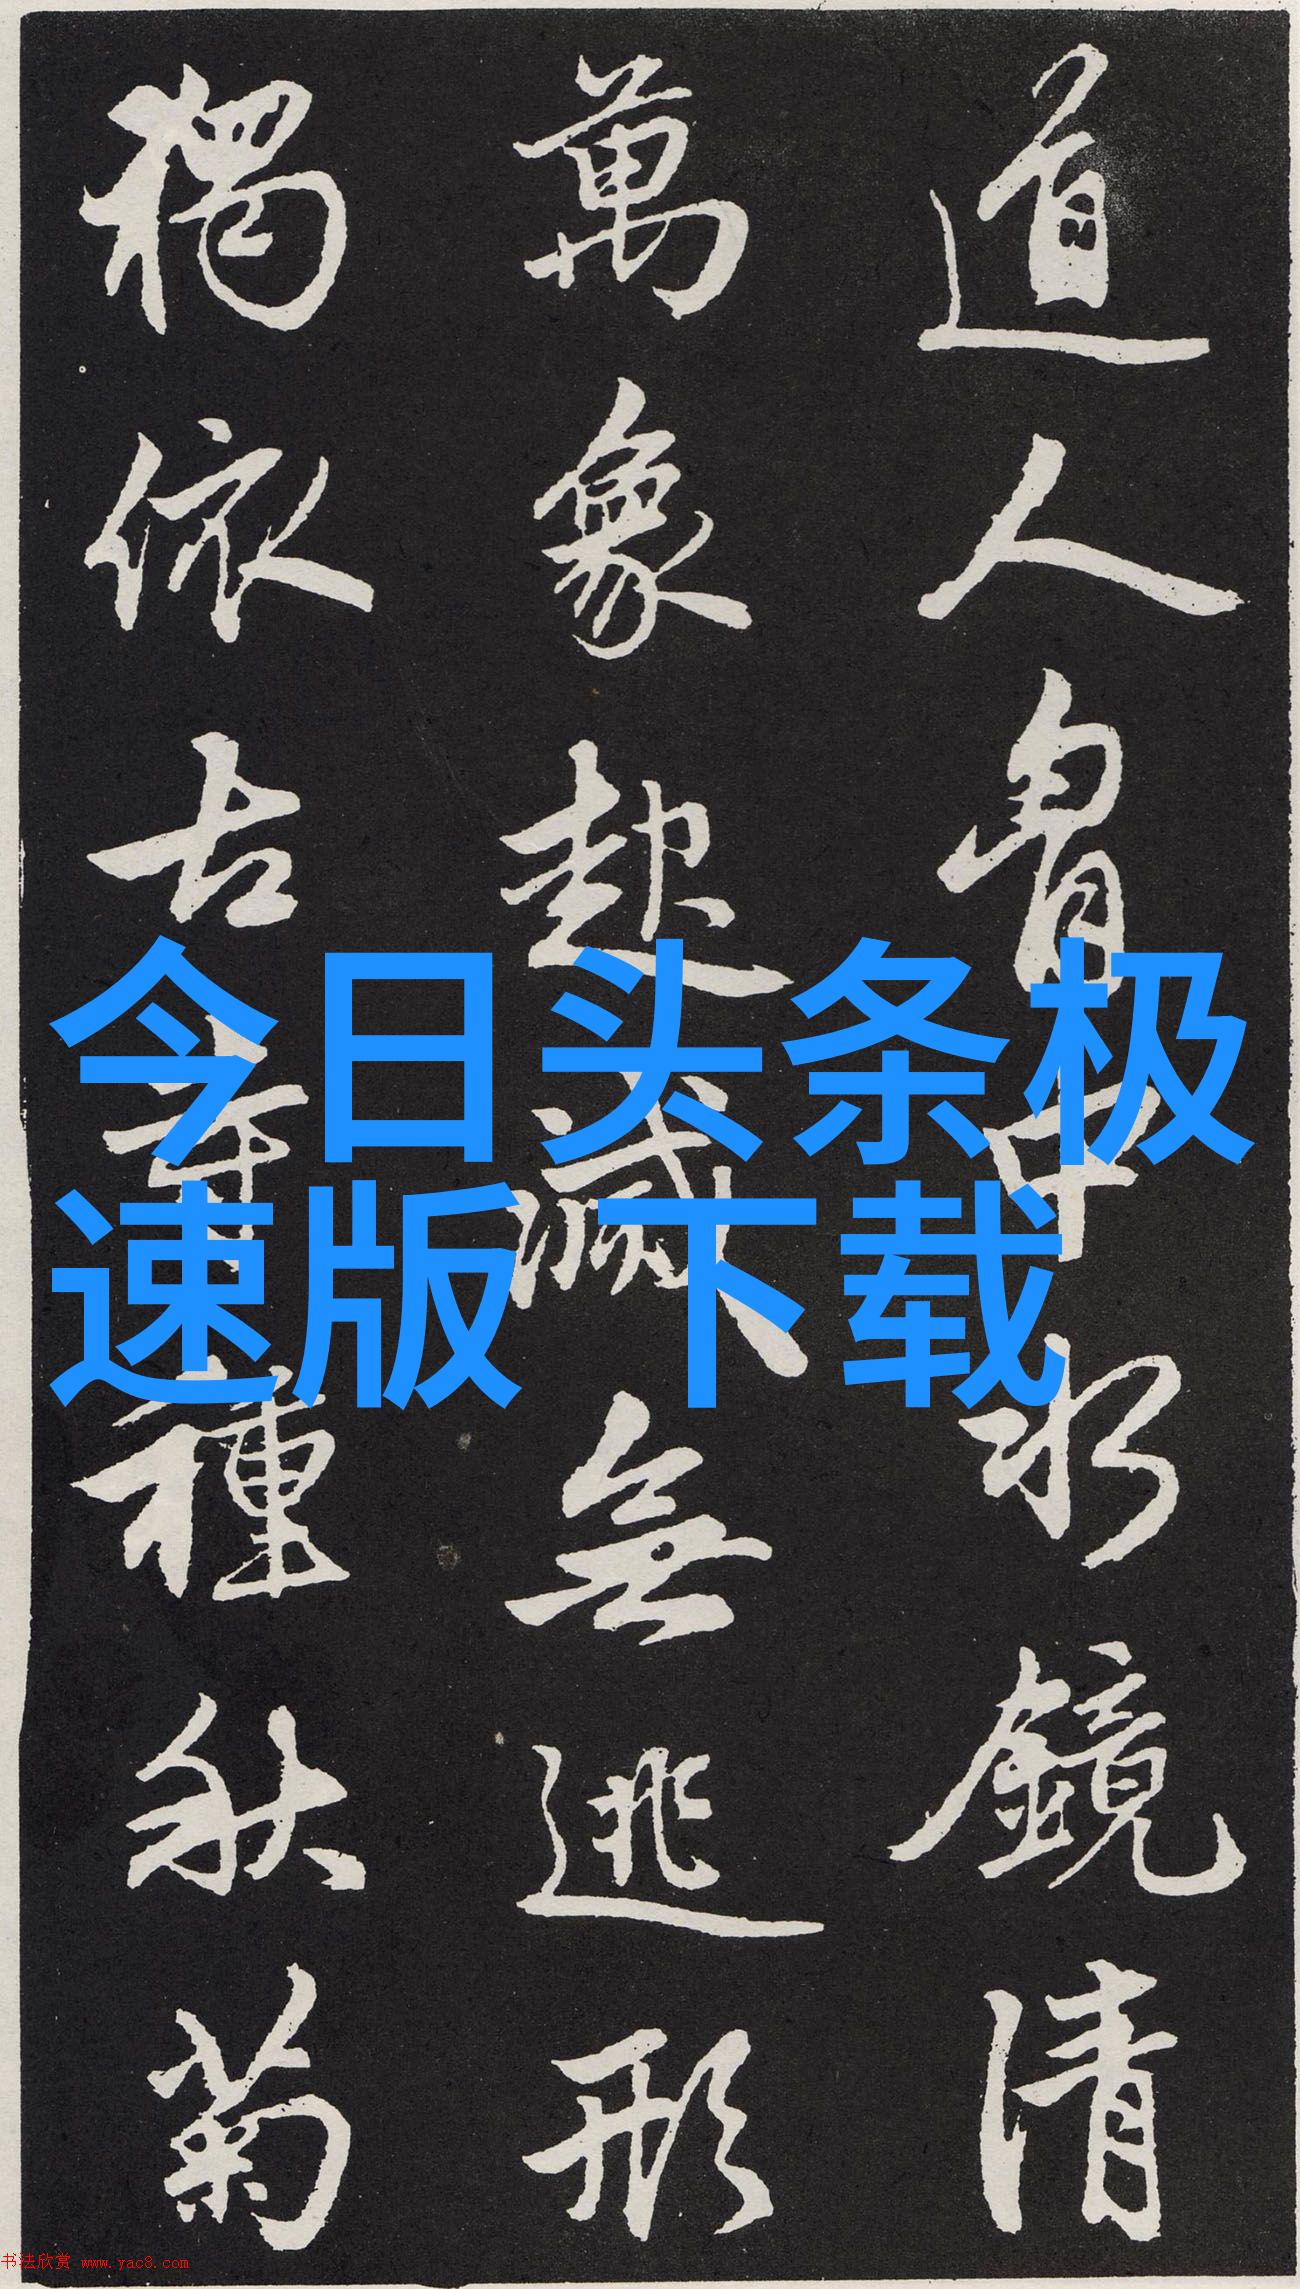 道人胷中水鏡清
萬象起滅無逃形
獨依古寺種秋菊
今日头条极
速版 下载
书法欣赏 www.yac8.com